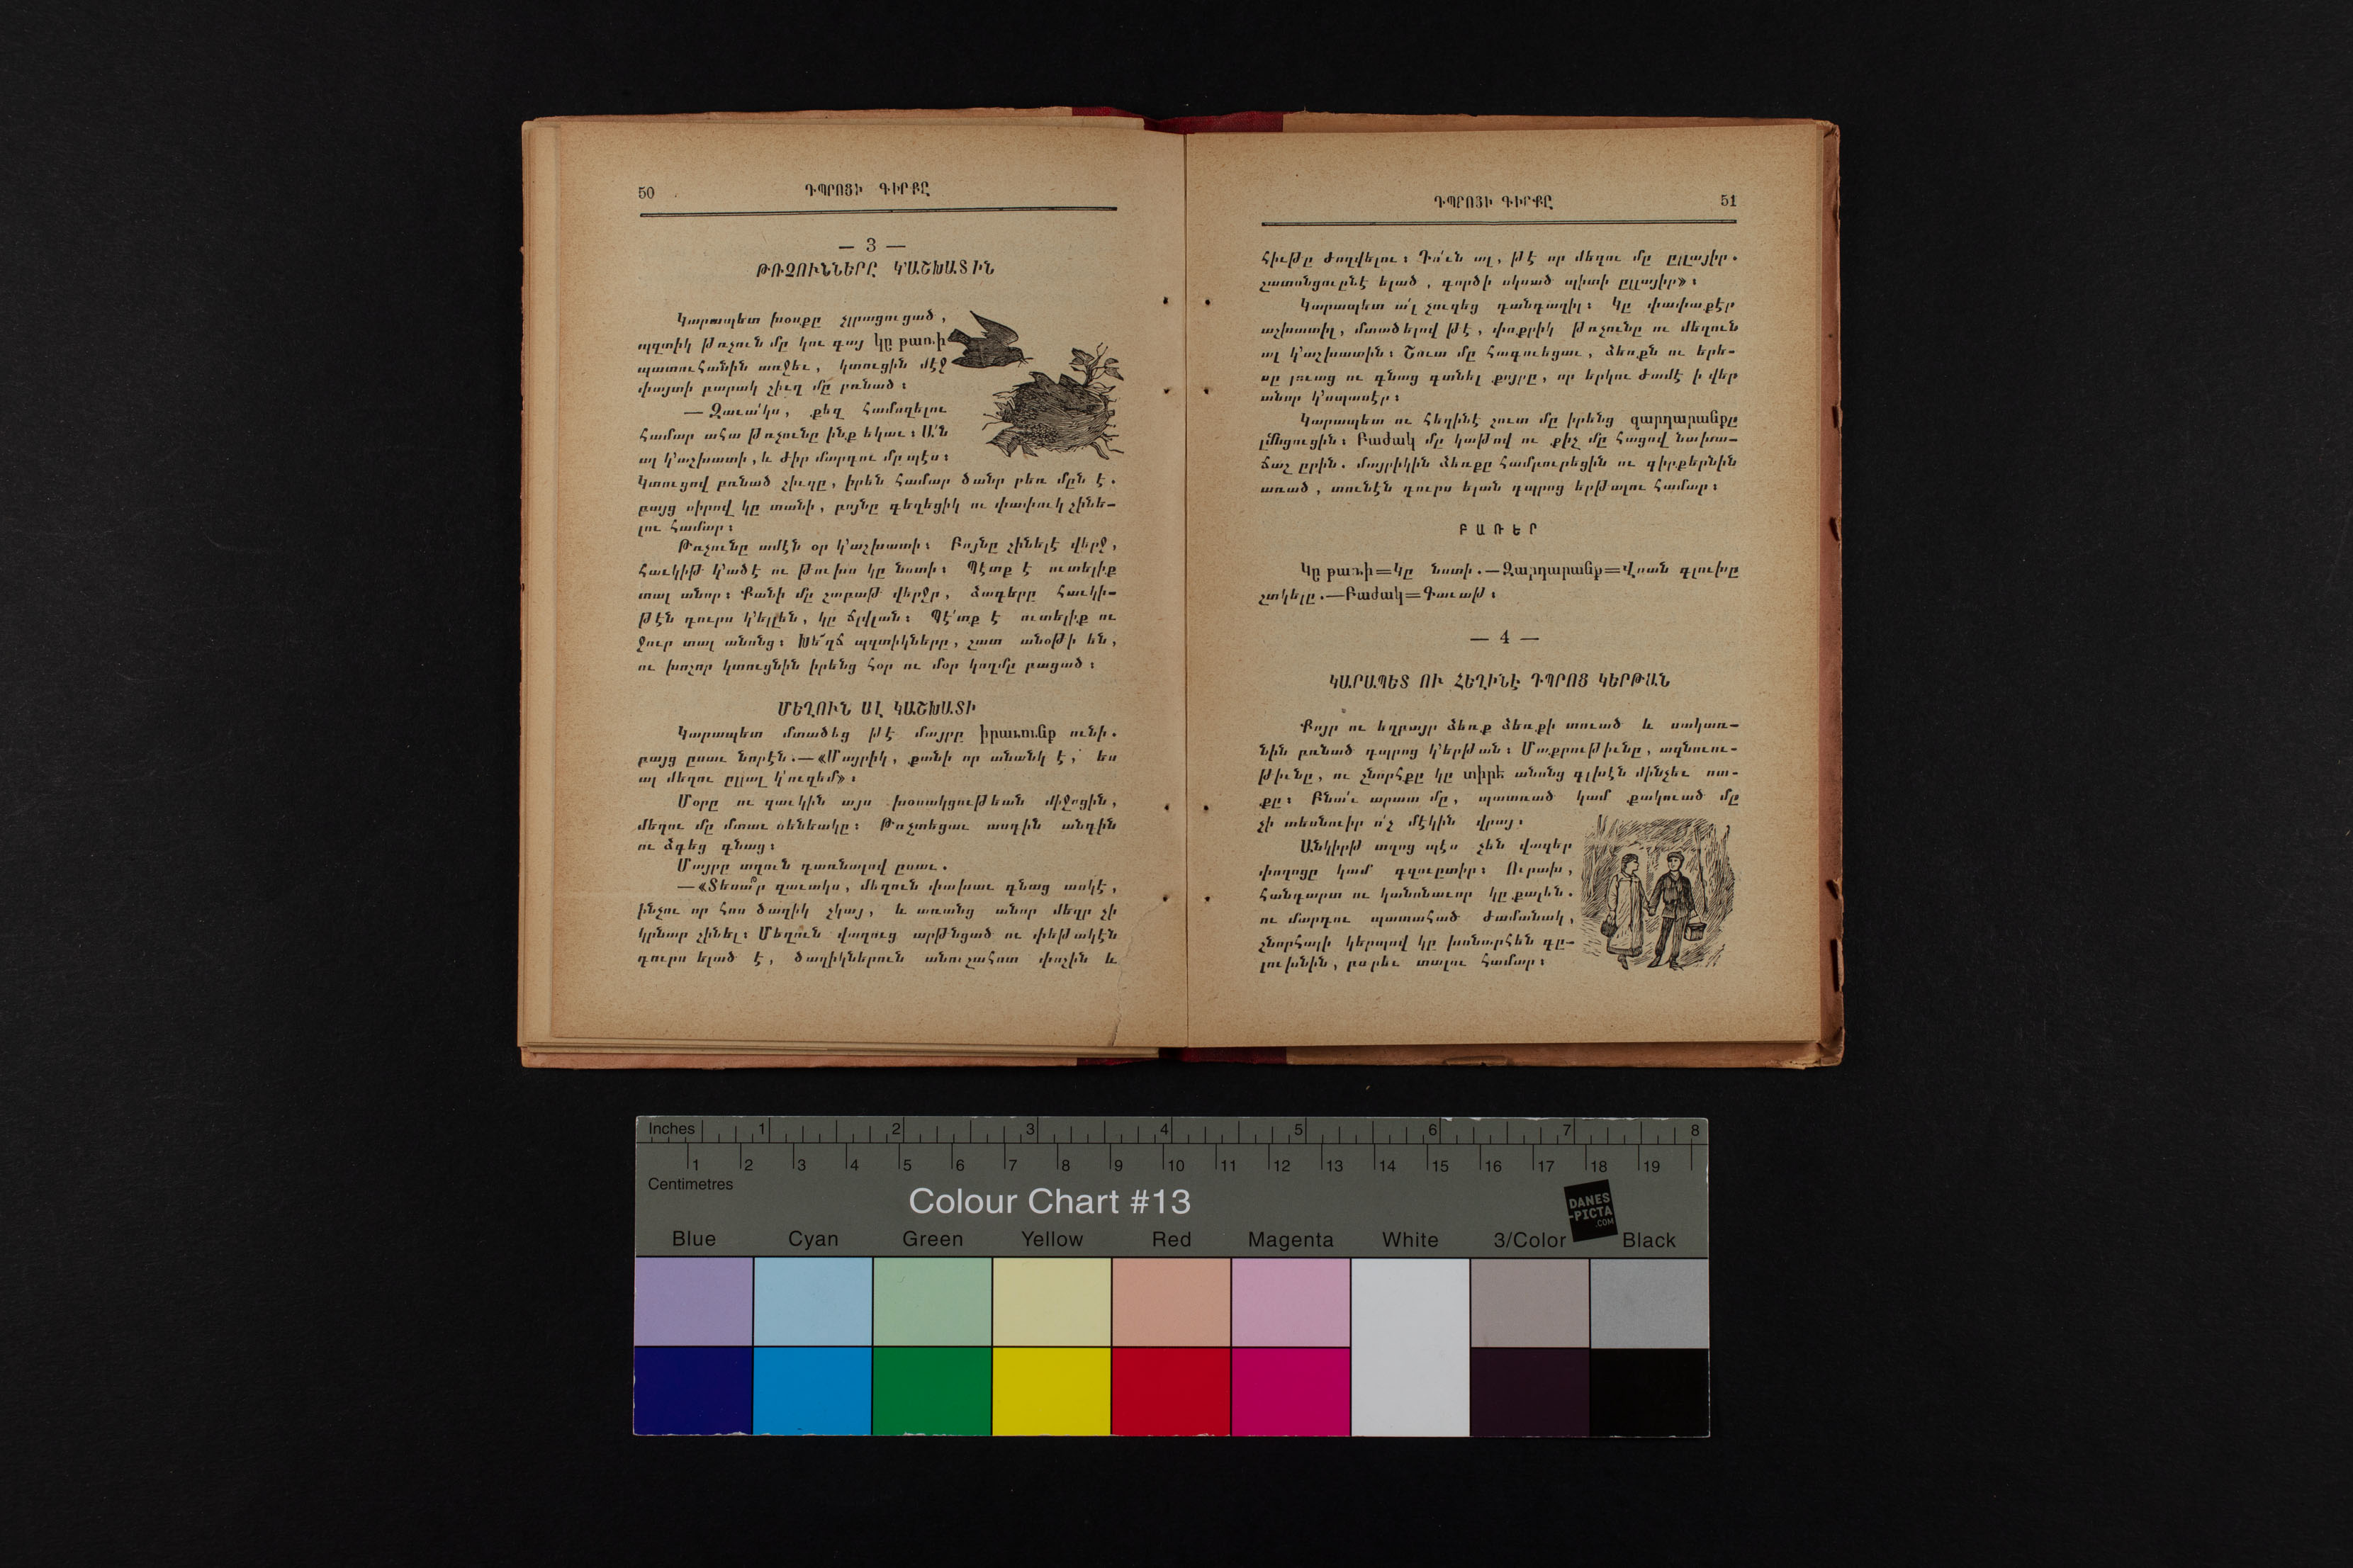 50
ԴՊՐՈՑԻ ԳԻՐՔԸ
— 3 —
ԹՌՉՈՒՆՆԵՐԸ Կ՚ԱՇԽԱՏԻՆ
Կարապետ խօսքը չլրացուցած,
պզտիկ թռչուն մը կու գայ կը թառի
պատուհանին առջեւ, կտուցին մէջ
փայտի բարակ շիւղ մը բռնած։
— Զաւա՛կս, քեզ համոզելու
համար ահա թռչունը ինք եկաւ։ Ա՛ն
ալ կ՚աշխատի, և ժիր մարդու մը պէս։
Կտուցով բռնած շիւղը, իրեն համար ծանր բեռ մըն է.
բայց սիրով կը տանի, բոյնը գեղեցիկ ու փափուկ շինե-
լու համար։
Թռչունը ամէն օր կ՚աշխատի։ Բոյնը շինելէ վերջ,
հաւկիթ կ՚ածէ ու թուխս կը նստի։ Պէտք է ուտելիք
տալ անոր։ Քանի մը շաբաթ վերջը, ձագերը հաւկի-
թէն դուրս կ՚ելլեն, կը ճլվլան։ Պէ՛տք է ուտելիք ու
ջուր տալ անոնց։ Խե՜ղճ պզտիկները, շատ անօթի են,
ու խոշոր կտուցնին իրենց հօր ու մօր կողմը բացած։
ՄԵՂՈՒՆ ԱԼ ԿԱՇԽԱՏԻ
Կարապետ մտածեց թէ մայրը իրաւունք ունի.
բայց ըսաւ նորէն.—«Մայրիկ, քանի որ անանկ է, ես
ալ մեղու ըլլալ կ՚ուզեմ»։
Մօրը ու զաւկին այս խօսակցութեան միջոցին,
մեղու մը մտաւ սենեակը։ Թռչտեցաւ ասդին անդին
ու ձգեց գնաց։
Մայրը տղուն դառնալով ըսաւ.
—«Տեսա՞ր զաւակս, մեղուն փախաւ գնաց ասկէ,
ինչու որ հոս ծաղիկ չկայ, և առանց անոր մեղր չի
կրնար շինել։ Մեղուն վաղուց արթնցած ու փեթակէն
դուրս ելած է, ծաղիկներուն անուշահոտ փոշին և
ԴՊՐՈՑԻ ԳԻՐՔԸ
51
հիւթը ժողվելու։ Դո՛ւն ալ, թէ որ մեղու մը ըլլայիր.
շատոնցուընէ ելած, գործի սկսած պիտի ըլլայիր»։
Կարապետ ա՛լ չուզեց դանդաղիլ։ Կը փափաքէր
աշխատիլ, մտածելով թէ, փոքրիկ թռչունը ու մեղուն
ալ կ՚աշխատին։ Շուտ մը հագուեցաւ, ձեռքն ու երե-
սը լուաց ու գնաց գտնել քոյրը, որ երկու ժամէ ի վեր
անոր կ՚սպասէր։
Կարապետ ու Հեղինէ շուտ մը իրենց զարդարանքը
լմնցուցին։ Բաժակ մը կաթով ու քիչ մը հացով նախա-
ճաշ ըրին. մայրիկին ձեռքը համբուրեցին ու գիրքերնին
առած, տունէն դուրս ելան դպրոց երթալու համար։
ԲԱՌԵՐ
Կը թառի=Կը նստի.—Զարդարանք=Վրան գլուխը
շտկելը.—Բաժակ=Գաւաթ։
— 4 —
ԿԱՐԱՊԵՏ ՈՒ ՀԵՂԻՆԷ ԴՊՐՈՑ ԿԵՐԹԱՆ
Քոյր ու եղբայր ձեռք ձեռքի տուած և սակառ-
նին բռնած դպրոց կ՚երթան։ Մաքրութիւնը, ազնուու-
թիւնը, ու շնորհքը կը տիրե անոնց գլխէն մինչեւ ոտ-
քը։ Բնա՛ւ արատ մը, պատռած կամ քակուած մը
չի տեսնուիր ո՛չ մէկին վրայ։
Անկիրթ տղոց պէս չեն վազեր
փողոցը կամ գզուըտիր։ Ուրախ,
հանդարտ ու կանոնաւոր կը քալեն.
ու մարդու պատահած ժամանակ,
շնորհալի կերպով կը խոնարհեն գը-
լուխնին, բարեւ տալու համար։
Inches 1 2 3 4 5 6 7 8
1 2 3 4 5 6 7 8 9 10 11 12 13 14 15 16 17 18 19
Centimetres
Colour Chart #13
DANES
-PICTA
.COM
Blue Cyan Green Yellow Red Magenta White 3/Color Black